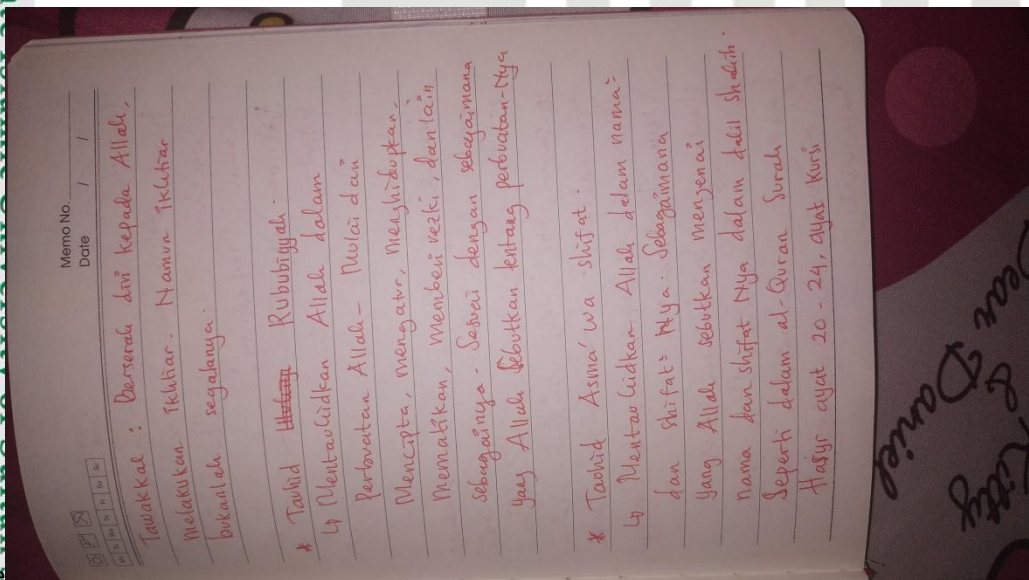 Memo No.
Date / /
Tawakkal : Berserah diri kepada Allah,
melakukan ikhtiar. Namun ikhtiar
bukanlah segalanya.
* Tauhid Rububiyyah.
↳ Mentauhidkan Allah dalam
Perbuatan Allah - Mulai dari
Mencipta, mengatur, menghidupkan,
Mematikan, memberi rezki, dan lain
sebagainya. Sesuai dengan sebagaimana
yang Allah sebutkan tentang perbuatan-Nya
* Tauhid Asma' wa shifat.
↳ Mentauhidkan Allah dalam nama²
dan shifat² Nya. Sebagaimana
yang Allah sebutkan mengenai
nama dan shifat Nya dalam dalil shahih.
Seperti dalam al-Quran Surah
Hasyr ayat 20 - 24, ayat Kursi
Dear
& Kitty
Daniel